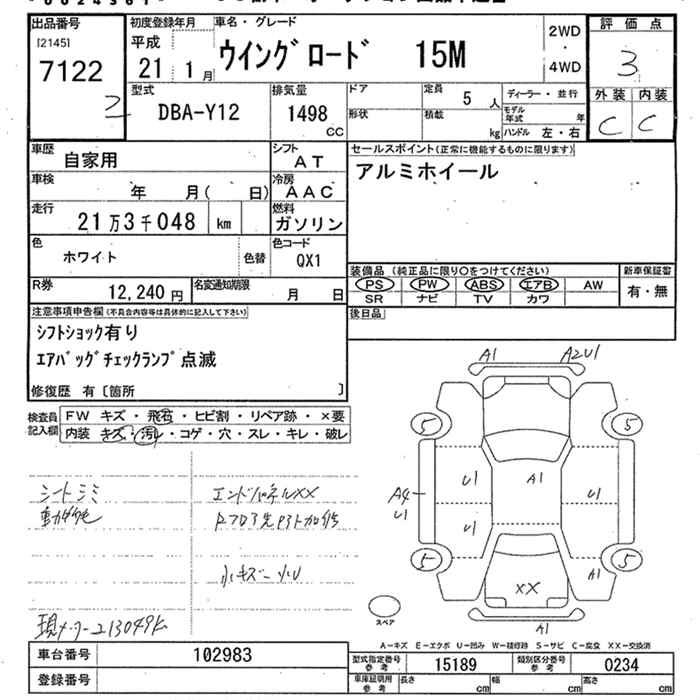 出品番号
[2145]
7122
2
初度登録年月
平成
21 1月
車名・グレード
ウイングロード 15M
2WD
・
4WD
評価点
3
外装 内装
C C
型式
DBA-Y12
排気量
1498
CC
ドア
形状
定員
5 人
積載
kg
ディーラー・並行
モデル年式 年
ハンドル 左・右
車歴
自家用
シフト
AT
車検
年 月( 日)
冷房
AAC
走行
21万3千048 km
燃料
ガソリン
色
ホワイト
色替
色コード
QX1
R券
12,240 円
名変通知期限
月 日
セールスポイント(正常に機能するものに限ります)
アルミホイール
装備品 (純正品に限り○をつけてください)
PS PW ABS エアB AW
SR ナビ TV カワ
新車保証書
有・無
後日品
注意事項申告欄(不具合内容等は具体的に記入して下さい)
シフトショック有り
エアバッグチェックランプ点滅
修復歴 有〔箇所 〕
検査員記入欄
FW キズ・飛石・ヒビ割・リペア跡・×要
内装 キズ・汚レ・コゲ・穴・スレ・キレ・破レ
シートシミ
エンドパネルXX
小キズ 小U
現メーター213049K
A1 A2U1
5 5
U1 A1 U1
A4
U1
U1
5 5
A1
XX
A1
スペア
A-キズ E-エクボ U-凹み W-補修跡 S-サビ C-腐食 XX-交換済
車台番号 102983
登録番号
型式指定番号 参考 15189
類別区分番号 参考 0234
車庫証明用 参考
長さ cm 幅 cm 高さ cm